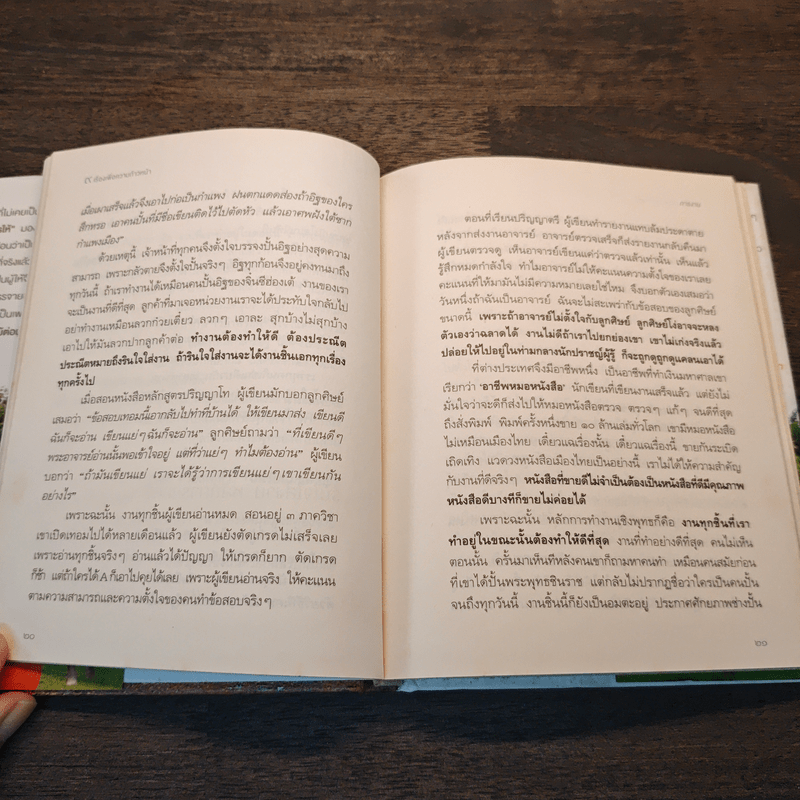 เมื่อเผาเสร็จแล้วจึงเอาไปก่อเป็นกำแพง ฝนตกแดดส่องถ้าอิฐของใคร
สึกหรอ เอาคนปั้นที่มีชื่อเขียนติดไว้ไปตัดหัว แล้วเอาศพฝังใต้ซาก
กำแพงเมือง”
ด้วยเหตุนี้ เจ้าหน้าที่ทุกคนจึงตั้งใจบรรจงปั้นอิฐอย่างสุดความ
สามารถ เพราะกลัวตายจึงตั้งใจปั้นจริงๆ อิฐทุกก้อนจึงอยู่คงทนมาถึง
ทุกวันนี้ ถ้าเราทำงานได้เหมือนคนปั้นอิฐของจิ๋นซีฮ่องเต้ งานของเรา
จะเป็นงานที่ดีที่สุด ลูกค้าที่มาเจอหน่วยงานเราจะได้ประทับใจกลับไป
อย่าทำงานเหมือนลวกก๋วยเตี๋ยว ลวกๆ เอาละ สุกบ้างไม่สุกบ้าง
เอาไปให้มันลวกปากลูกค้าต่อ ทำงานต้องทำให้ดี ต้องประณีต
ประณีตหมายถึงรินใจใส่งาน ถ้ารินใจใส่งานจะได้งานชิ้นเอกทุกเรื่อง
ทุกครั้งไป
เมื่อสอนหนังสือหลักสูตรปริญญาโท ผู้เขียนมักบอกลูกศิษย์
เสมอว่า “ข้อสอบเทอมนี้เอากลับไปทำที่บ้านได้ ให้เขียนมาส่ง เขียนดี
ฉันก็จะอ่าน เขียนแย่ๆ ฉันก็จะอ่าน” ลูกศิษย์ถามว่า “ที่เขียนดีๆ
พระอาจารย์อ่านนั้นพอเข้าใจอยู่ แต่ที่ว่าแย่ๆ ทำไมต้องอ่าน” ผู้เขียน
บอกว่า “ถ้ามันเขียนแย่ เราจะได้รู้ว่าการเขียนแย่ๆ เขาเขียนกัน
อย่างไร”
เพราะฉะนั้น งานทุกชิ้นผู้เขียนอ่านหมด สอนอยู่ ๓ ภาควิชา
เขาเปิดเทอมไปได้หลายเดือนแล้ว ผู้เขียนยังตัดเกรดไม่เสร็จเลย
เพราะอ่านทุกชิ้นจริงๆ อ่านแล้วได้ปัญญา ให้เกรดก็ยาก ตัดเกรด
ก็ช้า แต่ถ้าใครได้ A ก็เอาไปคุยได้เลย เพราะผู้เขียนอ่านจริง ให้คะแนน
ตามความสามารถและความตั้งใจของคนทำข้อสอบจริงๆ
๒๐
การงาน
ตอนที่เรียนปริญญาตรี ผู้เขียนทำรายงานแทบล้มประดาตาย
หลังจากส่งงานอาจารย์ อาจารย์ตรวจเสร็จก็ส่งรายงานกลับคืนมา
ผู้เขียนตรวจดู เห็นอาจารย์เขียนแค่ว่าตรวจแล้วเท่านั้น เห็นแล้ว
รู้สึกหมดกำลังใจ ทำไมอาจารย์ไม่ให้คะแนนความตั้งใจของเราเลย
คะแนนที่ให้มามันไม่มีความหมายเลยใช่ไหม จึงบอกตัวเองเสมอว่า
วันหนึ่งถ้าฉันเป็นอาจารย์ ฉันจะไม่สะเพร่ากับข้อสอบของลูกศิษย์
ขนาดนี้ เพราะถ้าอาจารย์ไม่ตั้งใจกับลูกศิษย์ ลูกศิษย์โง่อาจจะหลง
ตัวเองว่าฉลาดได้ งานไม่ดีถ้าเราไปยกย่องเขา เขาไม่เก่งจริงแล้ว
ปล่อยให้ไปอยู่ในท่ามกลางนักปราชญ์ผู้รู้ ก็จะถูกดูถูกดูแคลนเอาได้
ที่ต่างประเทศจึงมีอาชีพหนึ่ง เป็นอาชีพที่ทำเงินมหาศาลเขา
เรียกว่า ‘อาชีพหมอหนังสือ’ นักเขียนที่เขียนงานเสร็จแล้ว แต่ยังไม่
มั่นใจว่าจะดีก็ส่งไปให้หมอหนังสือตรวจ ตรวจๆ แก้ๆ จนดีที่สุด
ถึงสั่งพิมพ์ พิมพ์ครั้งหนึ่งขาย ๑๐ ล้านเล่มทั่วโลก เขามีหมอหนังสือ
ไม่เหมือนเมืองไทย เดี๋ยวแฉเรื่องนั้น เดี๋ยวแฉเรื่องนี้ ขายกันระเบิด
เถิดเทิง แวดวงหนังสือเมืองไทยเป็นอย่างนี้ เราไม่ได้ให้ความสำคัญ
กับงานที่ดีจริงๆ หนังสือที่ขายดีไม่จำเป็นต้องเป็นหนังสือที่ดีมีคุณภาพ
หนังสือดีบางทีก็ขายไม่ค่อยได้
เพราะฉะนั้น หลักการทำงานเชิงพุทธก็คือ งานทุกชิ้นที่เรา
ทำอยู่ในขณะนั้นต้องทำให้ดีที่สุด งานที่ทำอย่างดีที่สุด คนไม่เห็น
ตอนนั้น ครั้นมาเห็นทีหลังคนเขาก็ถามหาคนทำ เหมือนคนสมัยก่อน
ที่เขาได้ปั้นพระพุทธชินราช แต่กลับไม่ปรากฏชื่อว่าใครเป็นคนปั้น
จนถึงทุกวันนี้ งานชิ้นนี้ก็ยังเป็นอมตะอยู่ ประกาศศักยภาพช่างปั้น
๒๑